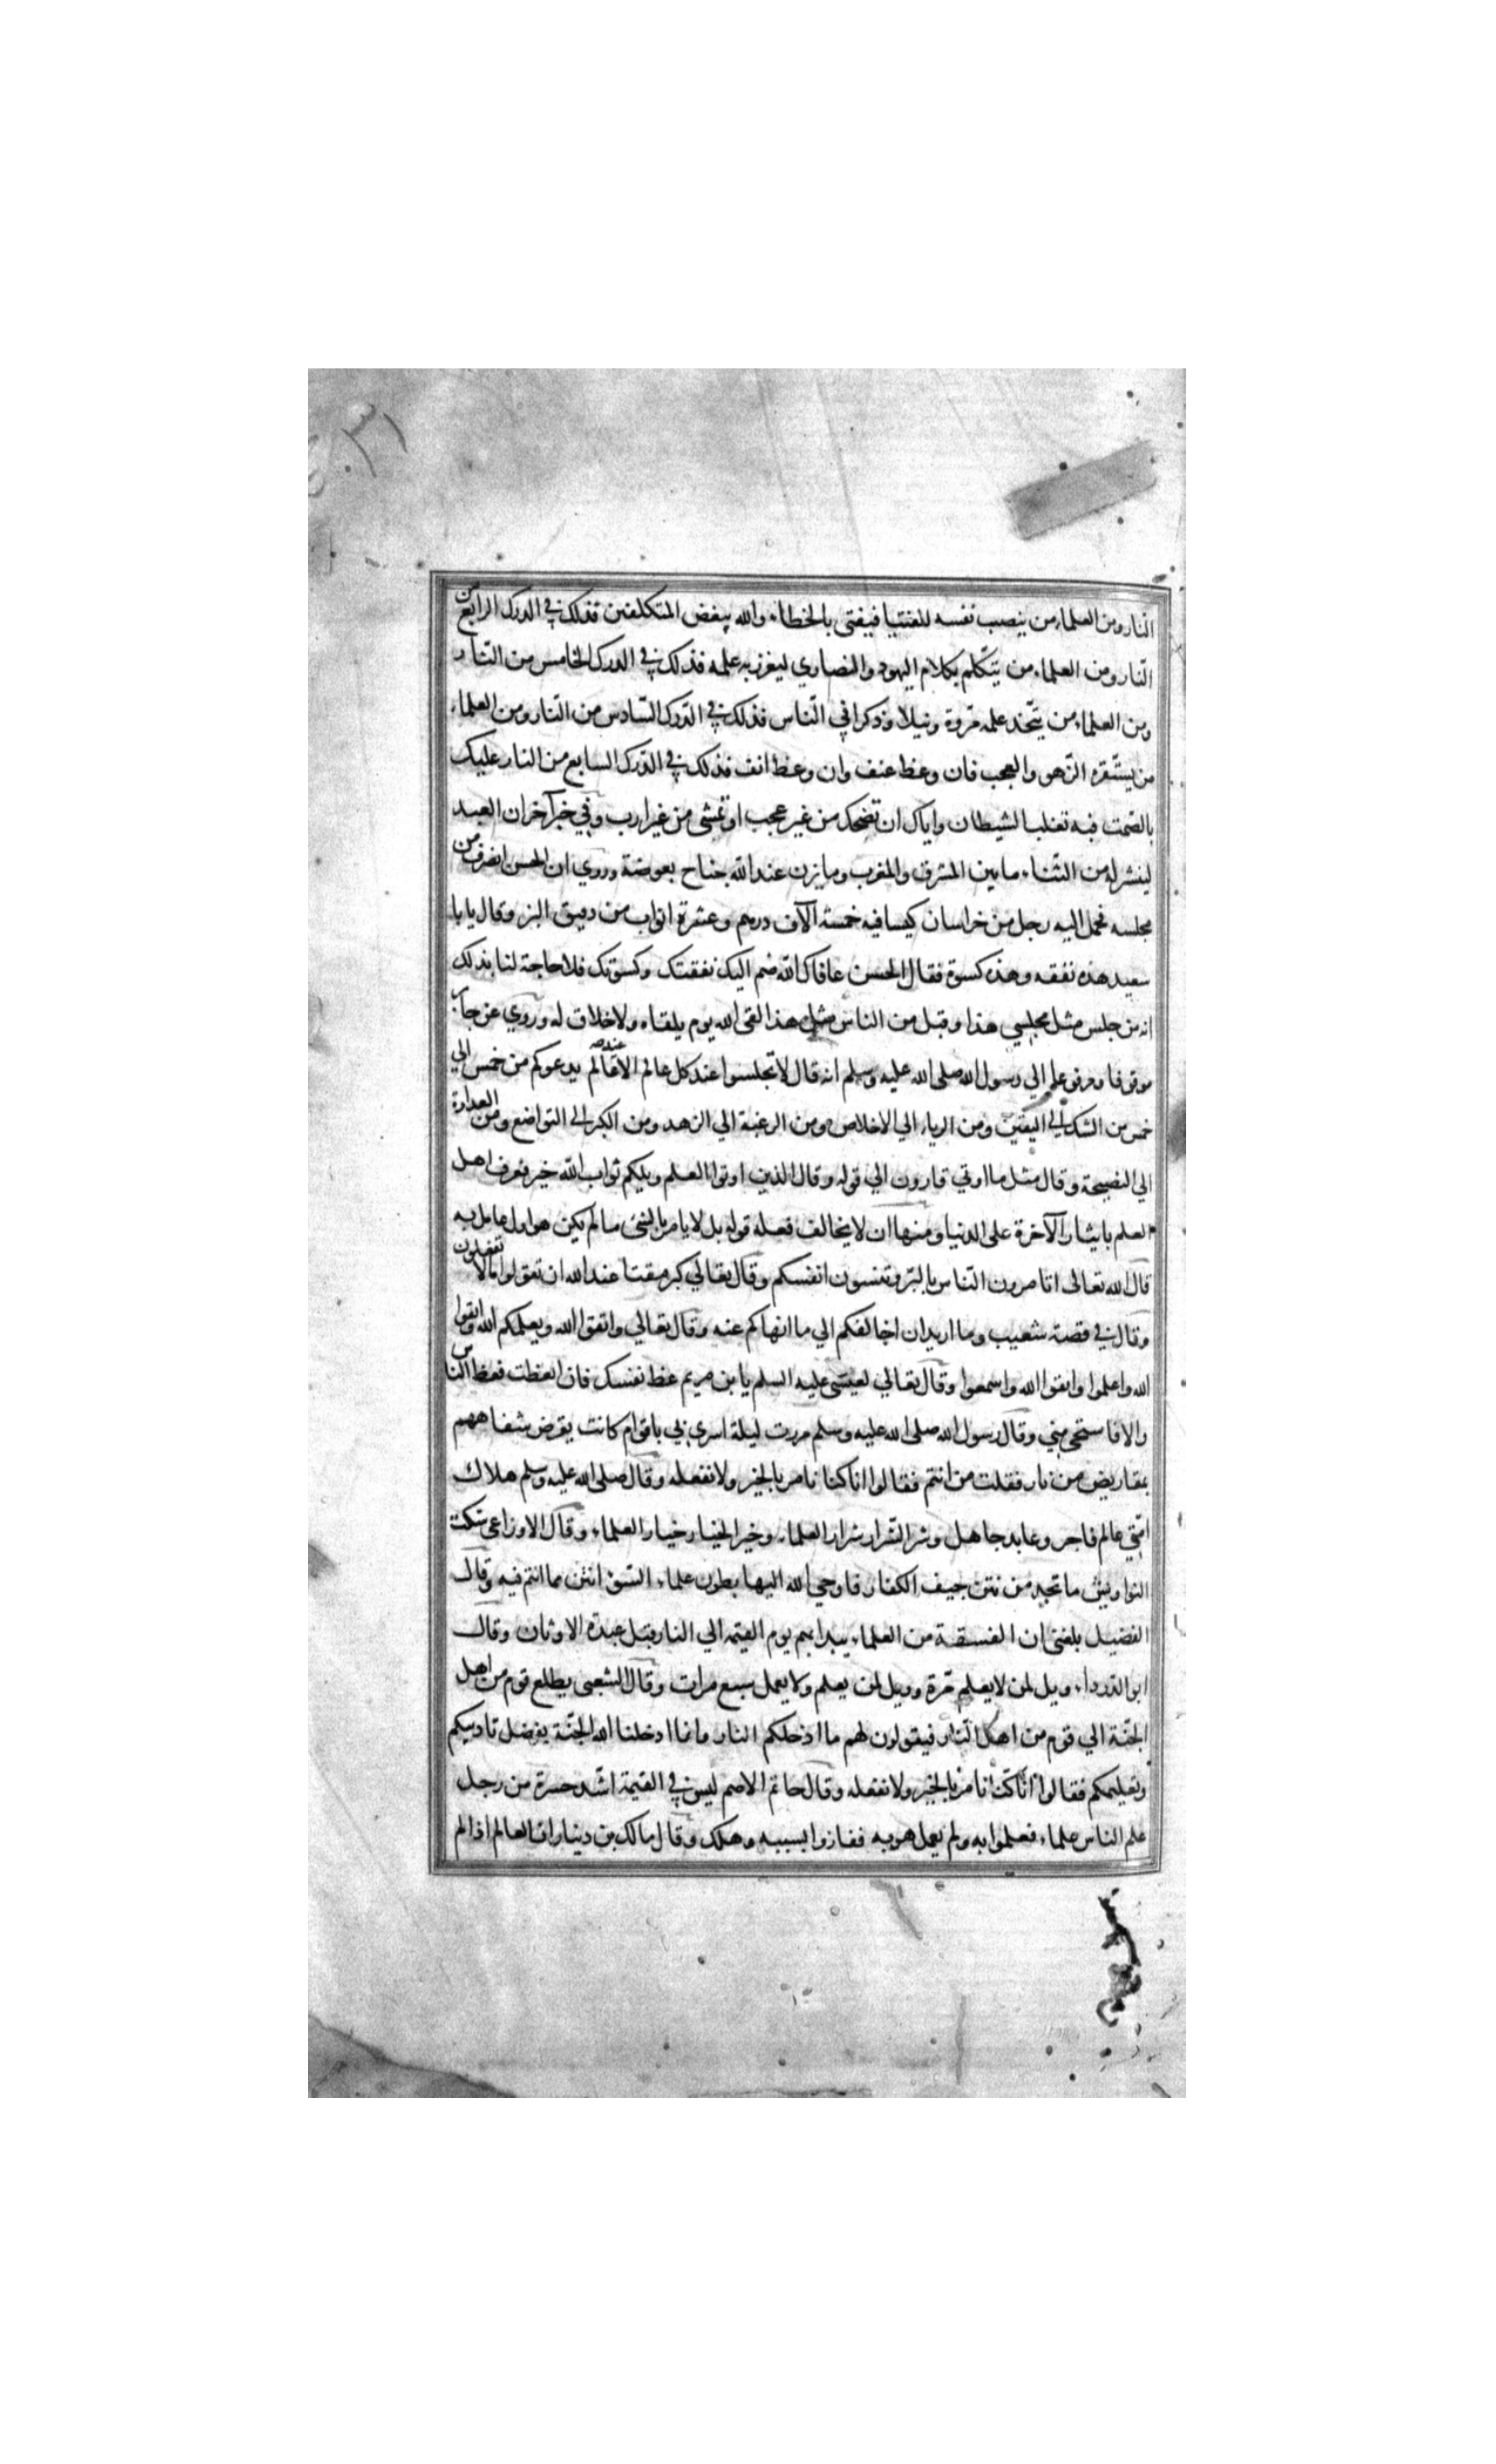 ٣١
النار ومن العلماء من ينصب نفسه للفتيا فيفتي بالخطاء والله يبغض المتكلفين فذلك في الدرك الرابع من
النار ومن العلماء من يتكلم بكلام اليهود والنصاري ليغزر به علمه فذلك في الدرك الخامس من النار
ومن العلماء من يتخذ علمه مروة ونبلا وذكرا في الناس فذلك في الدرك السادس من النار ومن العلماء
من يستفزه الزهو والعجب فان وعظ عنف وان وعظ انف فذلك في الدرك السابع من النار عليك
بالصمت فبه تغلب الشيطان واياك ان تضحك من غير عجب او تمشي من غير ارب وفي خبر آخر ان العبد
لينشر له من الثناء ما بين المشرق والمغرب وما يزن عند الله جناح بعوضة وروي ان الحسن انصرف من
مجلسه فحمل اليه رجل من خراسان كيسا فيه خمسة آلاف درهم وعشرة اثواب من دقيق البز وقال يا با
سعيد هذه نفقه وهذه كسوة فقال الحسن عافاك الله ضم اليك نفقتك وكسوتك فلا حاجة لنا بذلك
انه من جلس مثل مجلسي هذا وقبل من الناس مثل هذا لقي الله يوم يلقاه ولا خلاق له وروي عن جابر
موقوفا ومرفوعا الي رسول الله صلى الله عليه وسلم انه قال لا تجلسوا عند كل عالم الا عند عالم يدعوكم من خمس الي
خمس من الشك الي اليقين ومن الرياء الي الاخلاص ومن الرغبة الي الزهد ومن الكبر الي التواضع ومن العداوة
الي النصيحة وقال مثل ما اوتي قارون الي قوله وقال الذين اوتوا العلم ويلكم ثواب الله خير فعرف اهل
العلم بايثار الآخرة على الدنيا ومنها ان لا يخالف فعله قوله بل لا يامر بالشئ ما لم يكن هو اول عامل به
قال الله تعالى اتامرون الناس بالبر وتنسون انفسكم وقال تعالي كبر مقتا عند الله ان تقولوا ما لا تفعلون
وقال في قصة شعيب وما اريد ان اخالفكم الي ما انهاكم عنه وقال تعالي واتقوا الله ويعلمكم الله واتقوا
الله واعلموا واتقوا الله واسمعوا وقال تعالي لعيسى عليه السلم يا بن مريم عظ نفسك فان اتعظت فعظ الناس
والا فاستحي مني وقال رسول الله صلى الله عليه وسلم مررت ليلة اسري بي باقوام كانت يقرض شفاههم
بمقاريض من نار فقلت من انتم فقالوا انا كنا نامر بالخير ولا نفعله وقال صلى الله عليه وسلم هلاك
امتي عالم فاجر وعابد جاهل وشر الشرار شرار العلماء وخير الخيار خيار العلماء وقال الاوزاعي شكت
النواويس ما تجد من نتن جيف الكفار فاوحي الله اليها بطون علماء السوء انتن مما انتم فيه وقال
الفضيل بلغني ان الفسقة من العلماء يبدا بهم يوم القيمة الي النار قبل عبدة الاوثان وقال
ابو الدرداء ويل لمن لا يعلم مرة وويل لمن يعلم ولا يعمل سبع مرات وقال الشعبي يطلع قوم من اهل
الجنة الي قوم من اهل النار فيقولون لهم ما ادخلكم النار وانما ادخلنا الله الجنة بفضل تاديبكم
وتعليمكم فقالوا انا كنا نامر بالخير ولا نفعله وقال حاتم الاصم ليس في القيمة اشد حسرة من رجل
علم الناس علماء فعملوا به ولم يعمل هو به ففازوا بسببه وهلك وقال مالك بن دينار ان العالم اذا لم